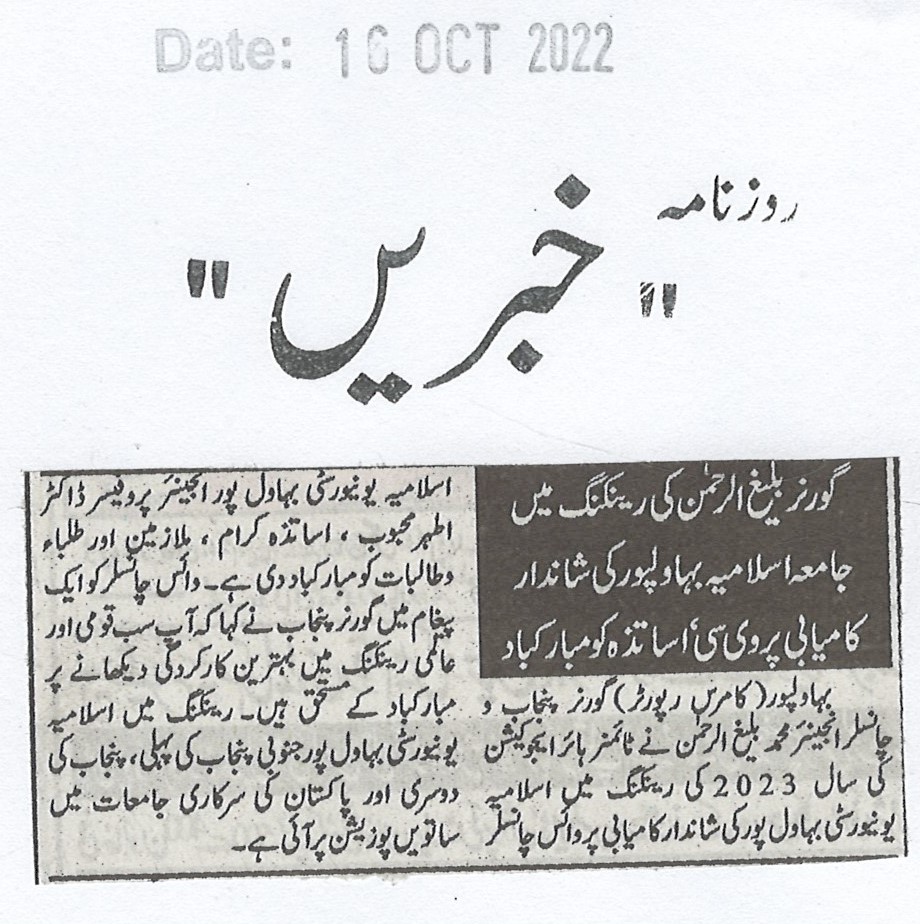 Date: 16 OCT 2022
روزنامہ
"خبریں"
گورنر بلیغ الرحمٰن کی رینکنگ میں
جامعہ اسلامیہ بہاولپور کی شاندار
کامیابی پر وی سی، اساتذہ کو مبارکباد
بہاولپور (کامرس رپورٹر) گورنر پنجاب و
چانسلر انجینئر محمد بلیغ الرحمٰن نے ٹائمنر ہائر ایجوکیشن
کی سال 2023 کی رینکنگ میں اسلامیہ
یونیورسٹی بہاول پور کی شاندار کامیابی پر وائس چانسلر
اسلامیہ یونیورسٹی بہاول پور انجینئر پروفیسر ڈاکٹر
اطہر محبوب ، اساتذہ کرام ، ملازمین اور طلباء
و طالبات کو مبارکباد دی ہے۔ وائس چانسلر کو ایک
پیغام میں گورنر پنجاب نے کہا کہ آپ سب قومی اور
عالمی رینکنگ میں بہترین کارکردگی دیکھانے پر
مبارکباد کے مستحق ہیں۔ رینکنگ میں اسلامیہ
یونیورسٹی بہاول پور جنوبی پنجاب کی پہلی، پنجاب کی
دوسری اور پاکستان کی سرکاری جامعات میں
ساتویں پوزیشن پر آئی ہے۔